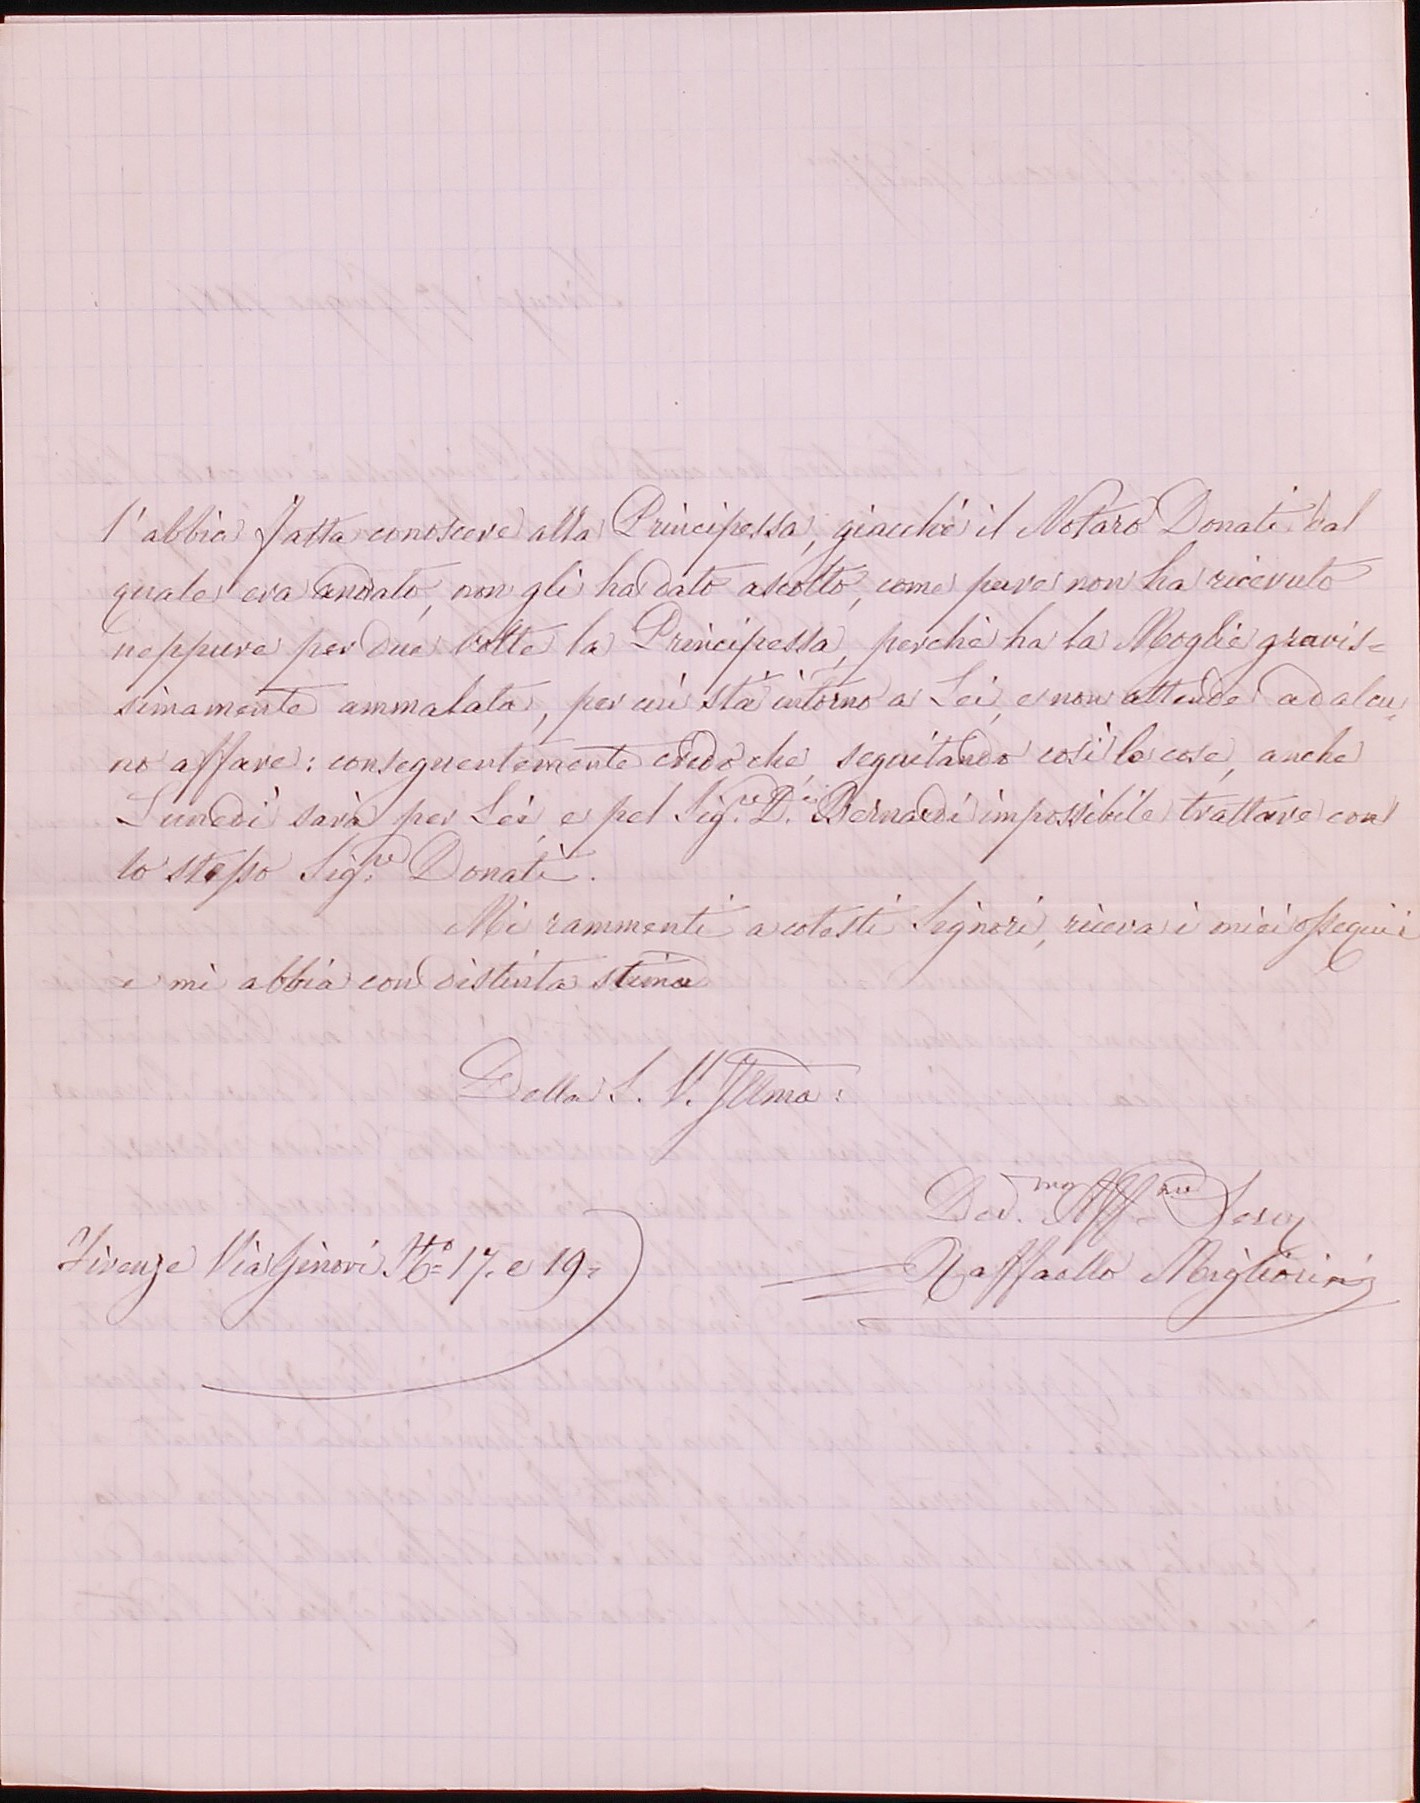 l'abbia fatta conoscere alla Principessa, giacchè il Notaro Donati dal
quale era andato, non gli ha dato ascolto, come pure non ha ricevuto
neppure per due volte la Principessa, perchè ha la Moglie gravis=
simamente ammalata, per cui stà intorno a Lei, e non attende ad alcu=
no affare: conseguentemente credo che, seguitando così le cose, anche
Lunedì sarà per Lei, e pel Sig.re D. Bernardi impossibile trattare con
lo stesso Sig.re Donati.
Mi rammenti a cotesti Signori, riceva i miei ossequii
e mi abbia con distinta stima
Della S. V. Illma:
Dev.mo Aff.mo Serv
Firenze Via Ginori No= 17. e 19=
Raffaello Migliorini